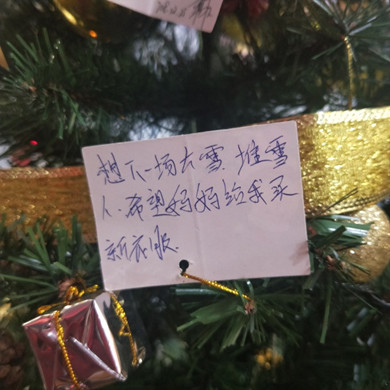 想下一场大雪.堆雪
人.希望妈妈给我买
新衣服.